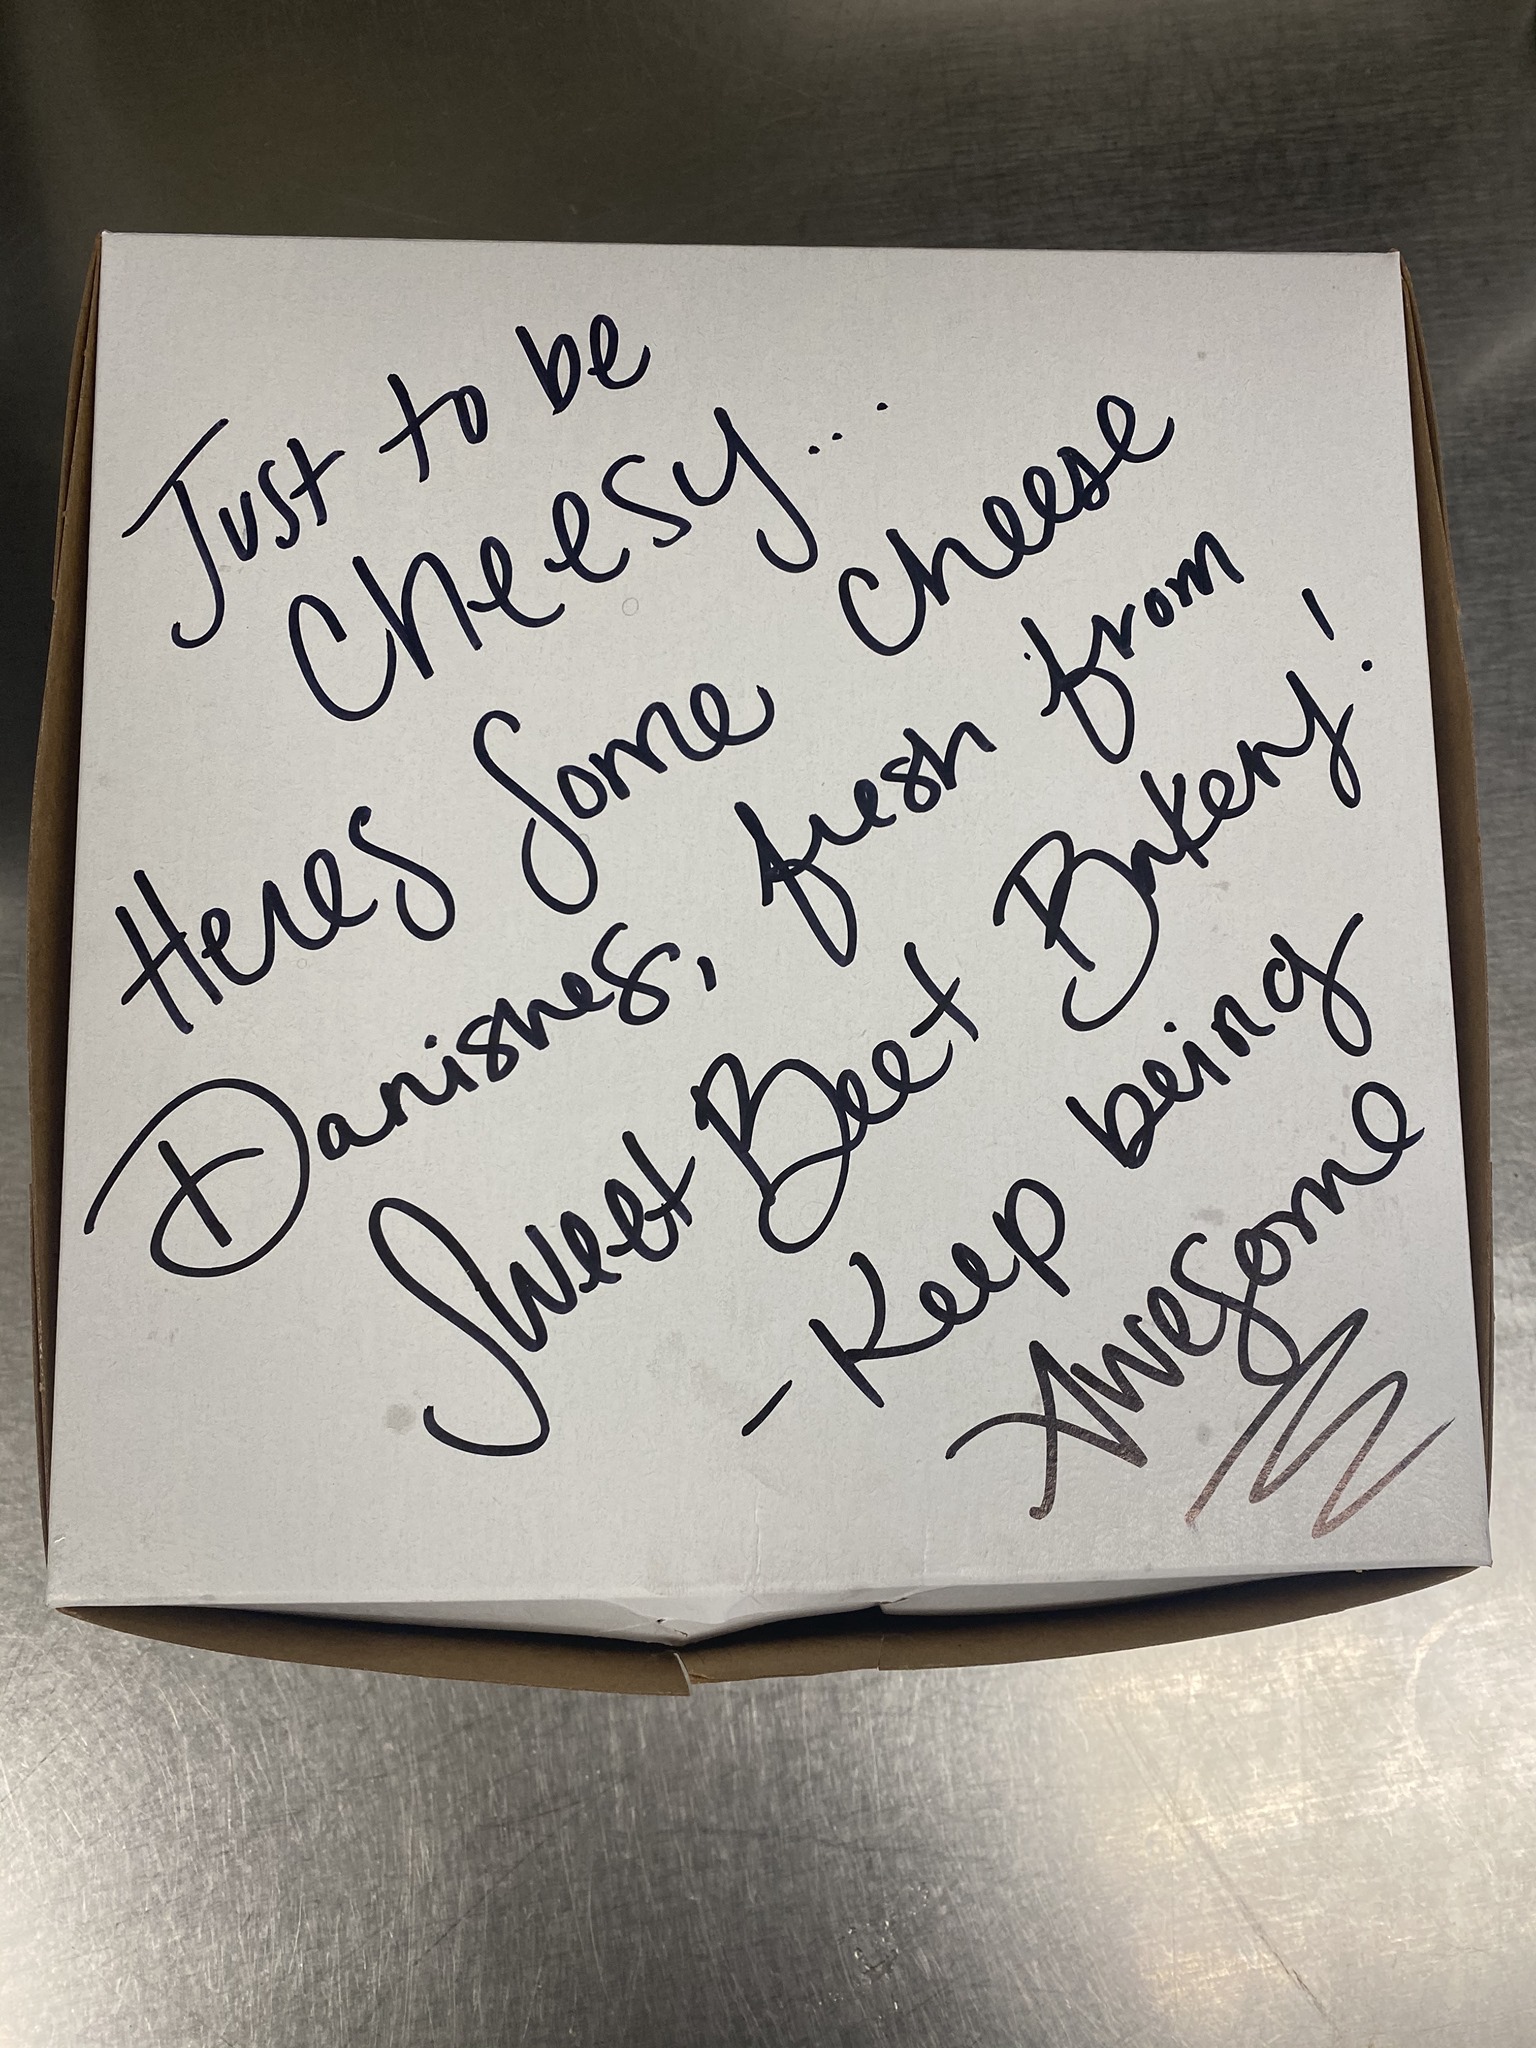 Just to be
Cheesy...
Heres Some Cheese
Danishes, fresh from
Sweet Beet Bakery!
- Keep being
Awesome